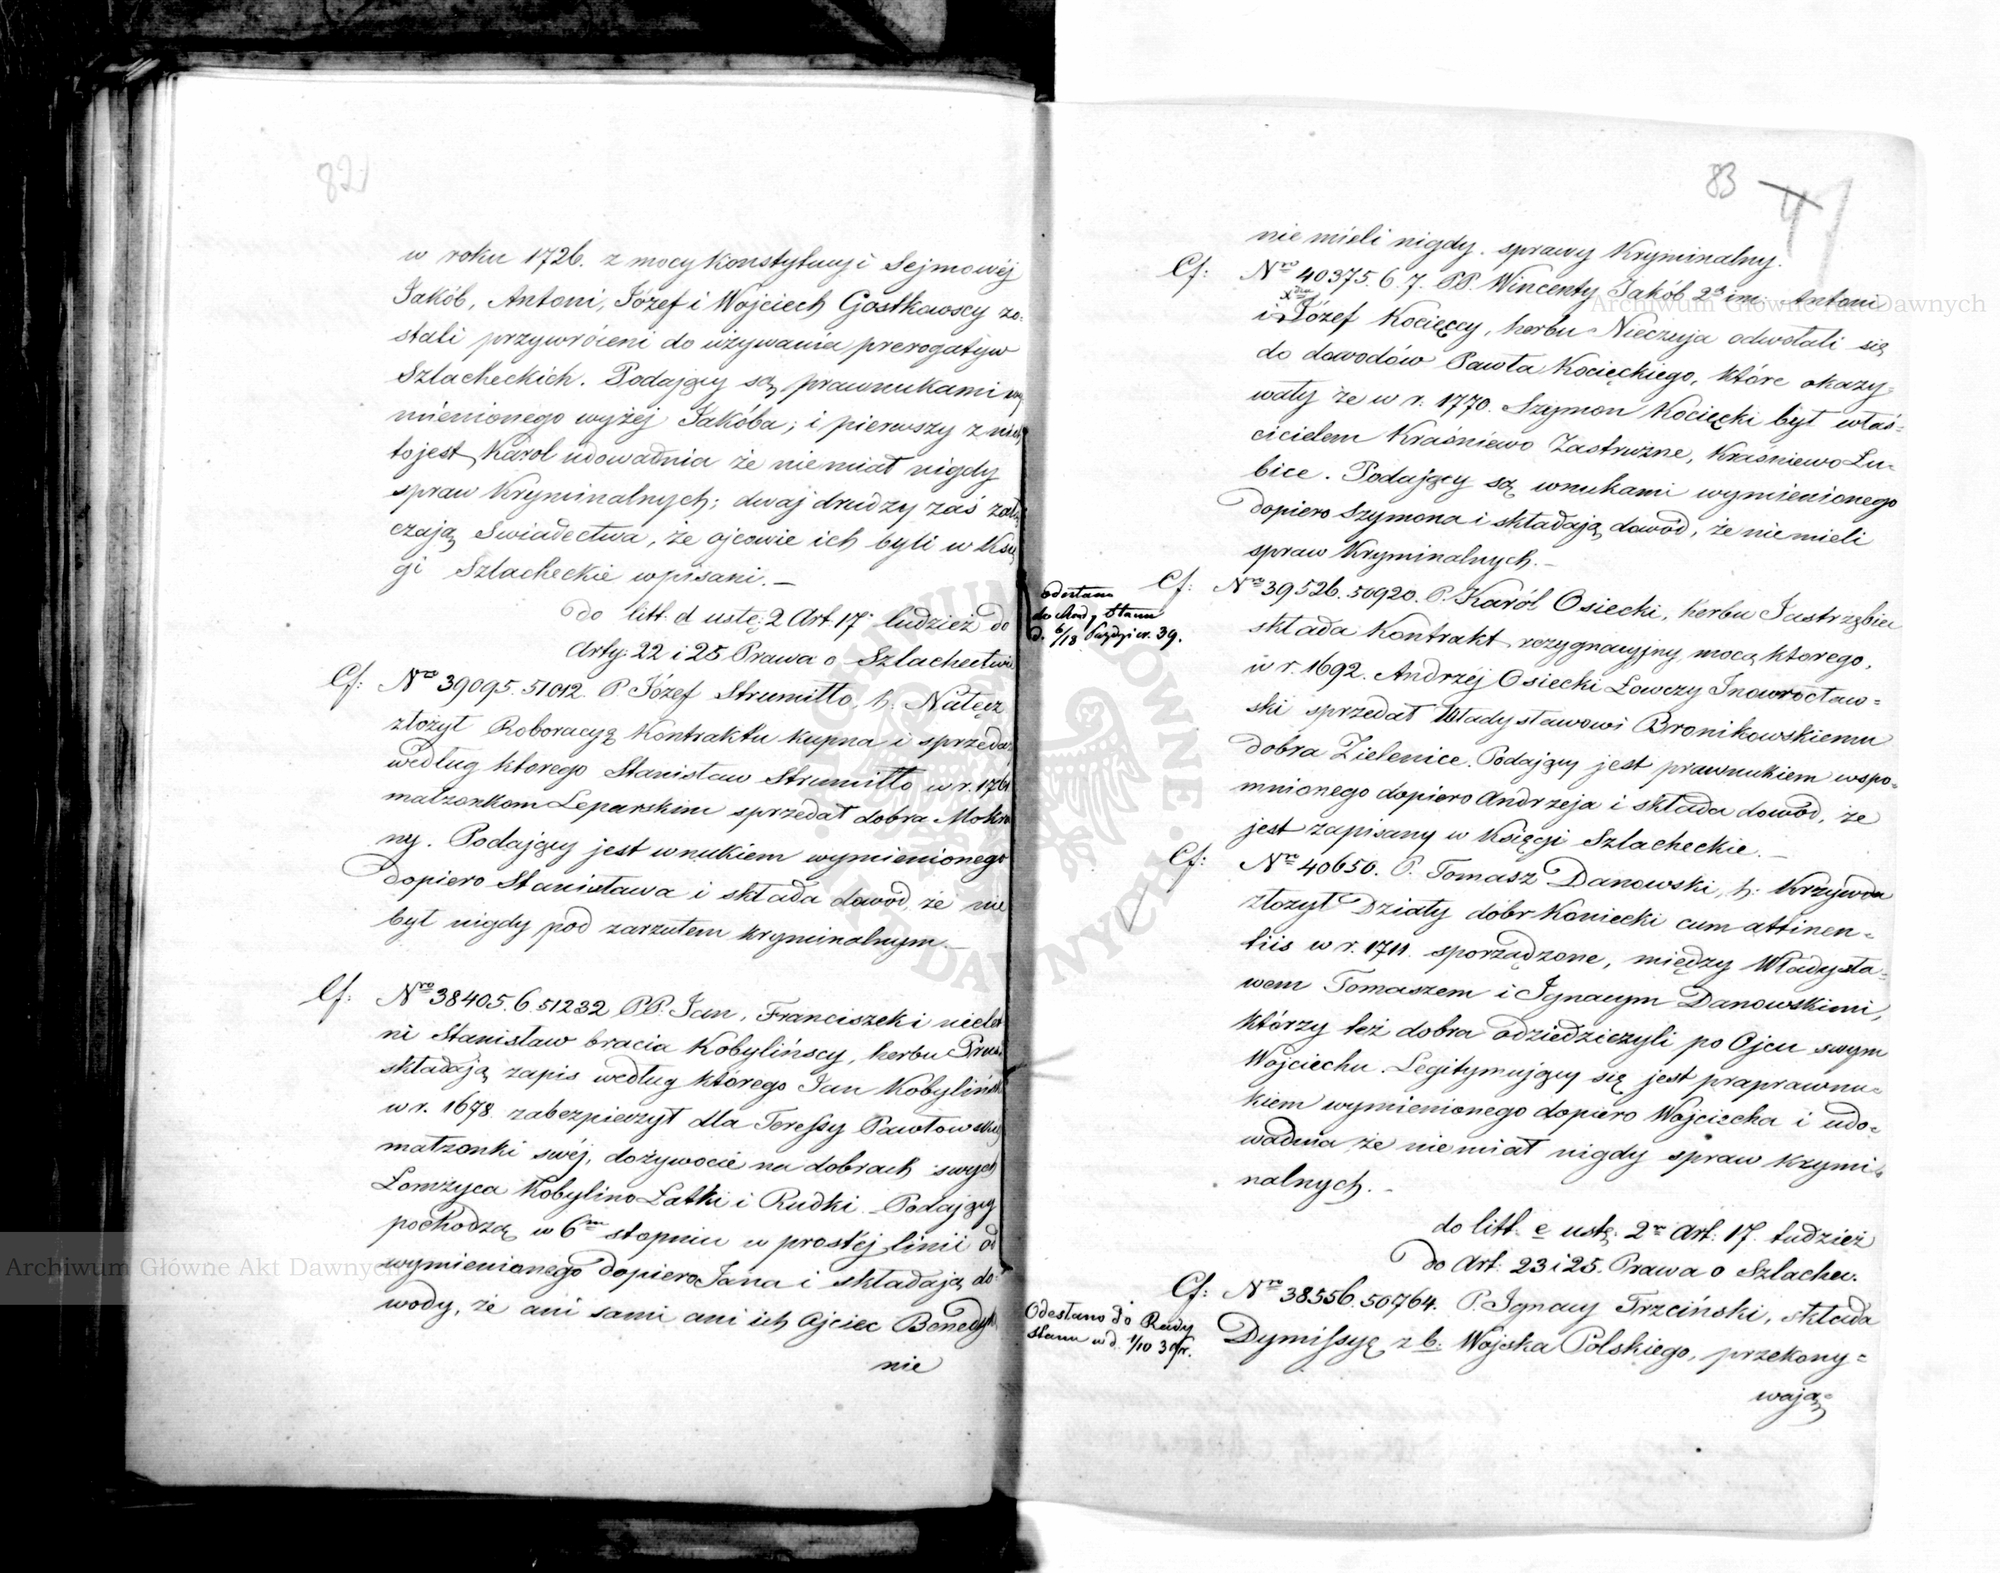 82
w roku 1726. z mocy Konstytucyi Sejmowéj
Jakób, Antoni, Józef i Wojciech Gostkowscy zo-
stali przywróceni do używania prerogatyw
Szlacheckich. Podający są prawnukami wy
mienionego wyżéj Jakóba; i pierwszy z nich
to jest Karol udowadnia że nie miał nigdy
spraw Kryminalnych; dwaj drudzy zaś załą
czają Swiadectwa, że ojcowie ich byli w Księ
gi Szlacheckie wpisani.–
do litt. d ustę: 2 Art 17. tudzież do
Arty: 22 i 25 Prawa o Szlachectwie
Cf: Nro 39095. 51012. P. Józef Strumiłło, h. Nałęcz
złożył Roboracyą Kontraktu kupna i sprzeda:
według ktorego Stanisław Strumiłło w r. 1761
małzonkom Leparskim sprzedał dobra Mokra
ny. Podający jest wnukiem wymienionego
dopiero Stanisława i składa dowód, że nie
był nigdy pod zarzutem kryminalnym.–
Cf: Nro 38405. 6 51232 PP. Jan, Franciszek i nielet
ni Stanisław bracia Kobylińscy, herbu Prus
składają zapis według którego Jan Kobyliński
w r. 1678. zabezpieczył dla Teressy Pawłowskiej
małzonki swéj, dożywocie na dobrach swych
Łomżyca Kobylino Łatki i Rudki. Podający
pochodzą w 6m stopniu w prostéj linii od
wymienionego dopiero Jana i składają do-
wody, że ani sami ani ich Ojciec Benedykt
nie
83
nie mieli nigdy sprawy Kryminalny.
Cf: Nro 40375. 6. 7. PP. Wincenty Jakób 2ga im. Antoni
i Józef Kocięccy, herbu Nieczuja odwołali się
do dowodów Pawła Kocięckiego, które okazy-
wały że w r. 1770. Szymon Kocięcki był właś-
cicielem Kraśniewo Zastruzne, Kraśniewo Łu-
bice. Podający są wnukami wymienionego
dopiero Szymona i składają dowód, że nie mieli
spraw Kryminalnych.–
odesłano
do Rady Stanu
d. 6/18 Paździer. 39.
Cf: Nro 39526. 50920. P. Karól Osiecki, herbu Jastrzębiec
składa Kontrakt rezygnacyjny mocą ktorego,
w r. 1692. Andrzéj Osiecki Łowczy Inowrocław-
ski sprzedał Władysławowi Bronikowskiemu
dobra Zielenice. Podający jest prawnukiem wspo-
mnionego dopiero Andrzeja i składa dowód, że
jest zapisany w Księgi Szlacheckie.–
Cf: Nro 40650. P. Tomasz Danowski, h: Krzywda
złożył Działy dóbr Koniecki cum attinen-
tiis w r. 1711. sporządzone, między Władysła-
wem Tomaszem i Ignacym Danowskimi,
którzy też dobra odziedziczyli po Ojcu swym
Wojciechu. Legitymujący się jest praprawnu-
kiem wymienionego dopiero Wojciecha i udo-
wadnia że nie miał nigdy spraw krymi-
nalnych.–
do litt. e ustę: 2o Art: 17. tudzież
do Art: 23 i 25. Prawa o Szlachec.
Cf: Nro 38556. 50764. P. Ignacy Trzciński, składa
Odesłano do Rady
Stanu w d. 1/10 39 r.
Dymissyę z b: Wojska Polskiego, przekony-
wają-
Archiwum Główne Akt Dawnych
Archiwum Główne Akt Dawnych